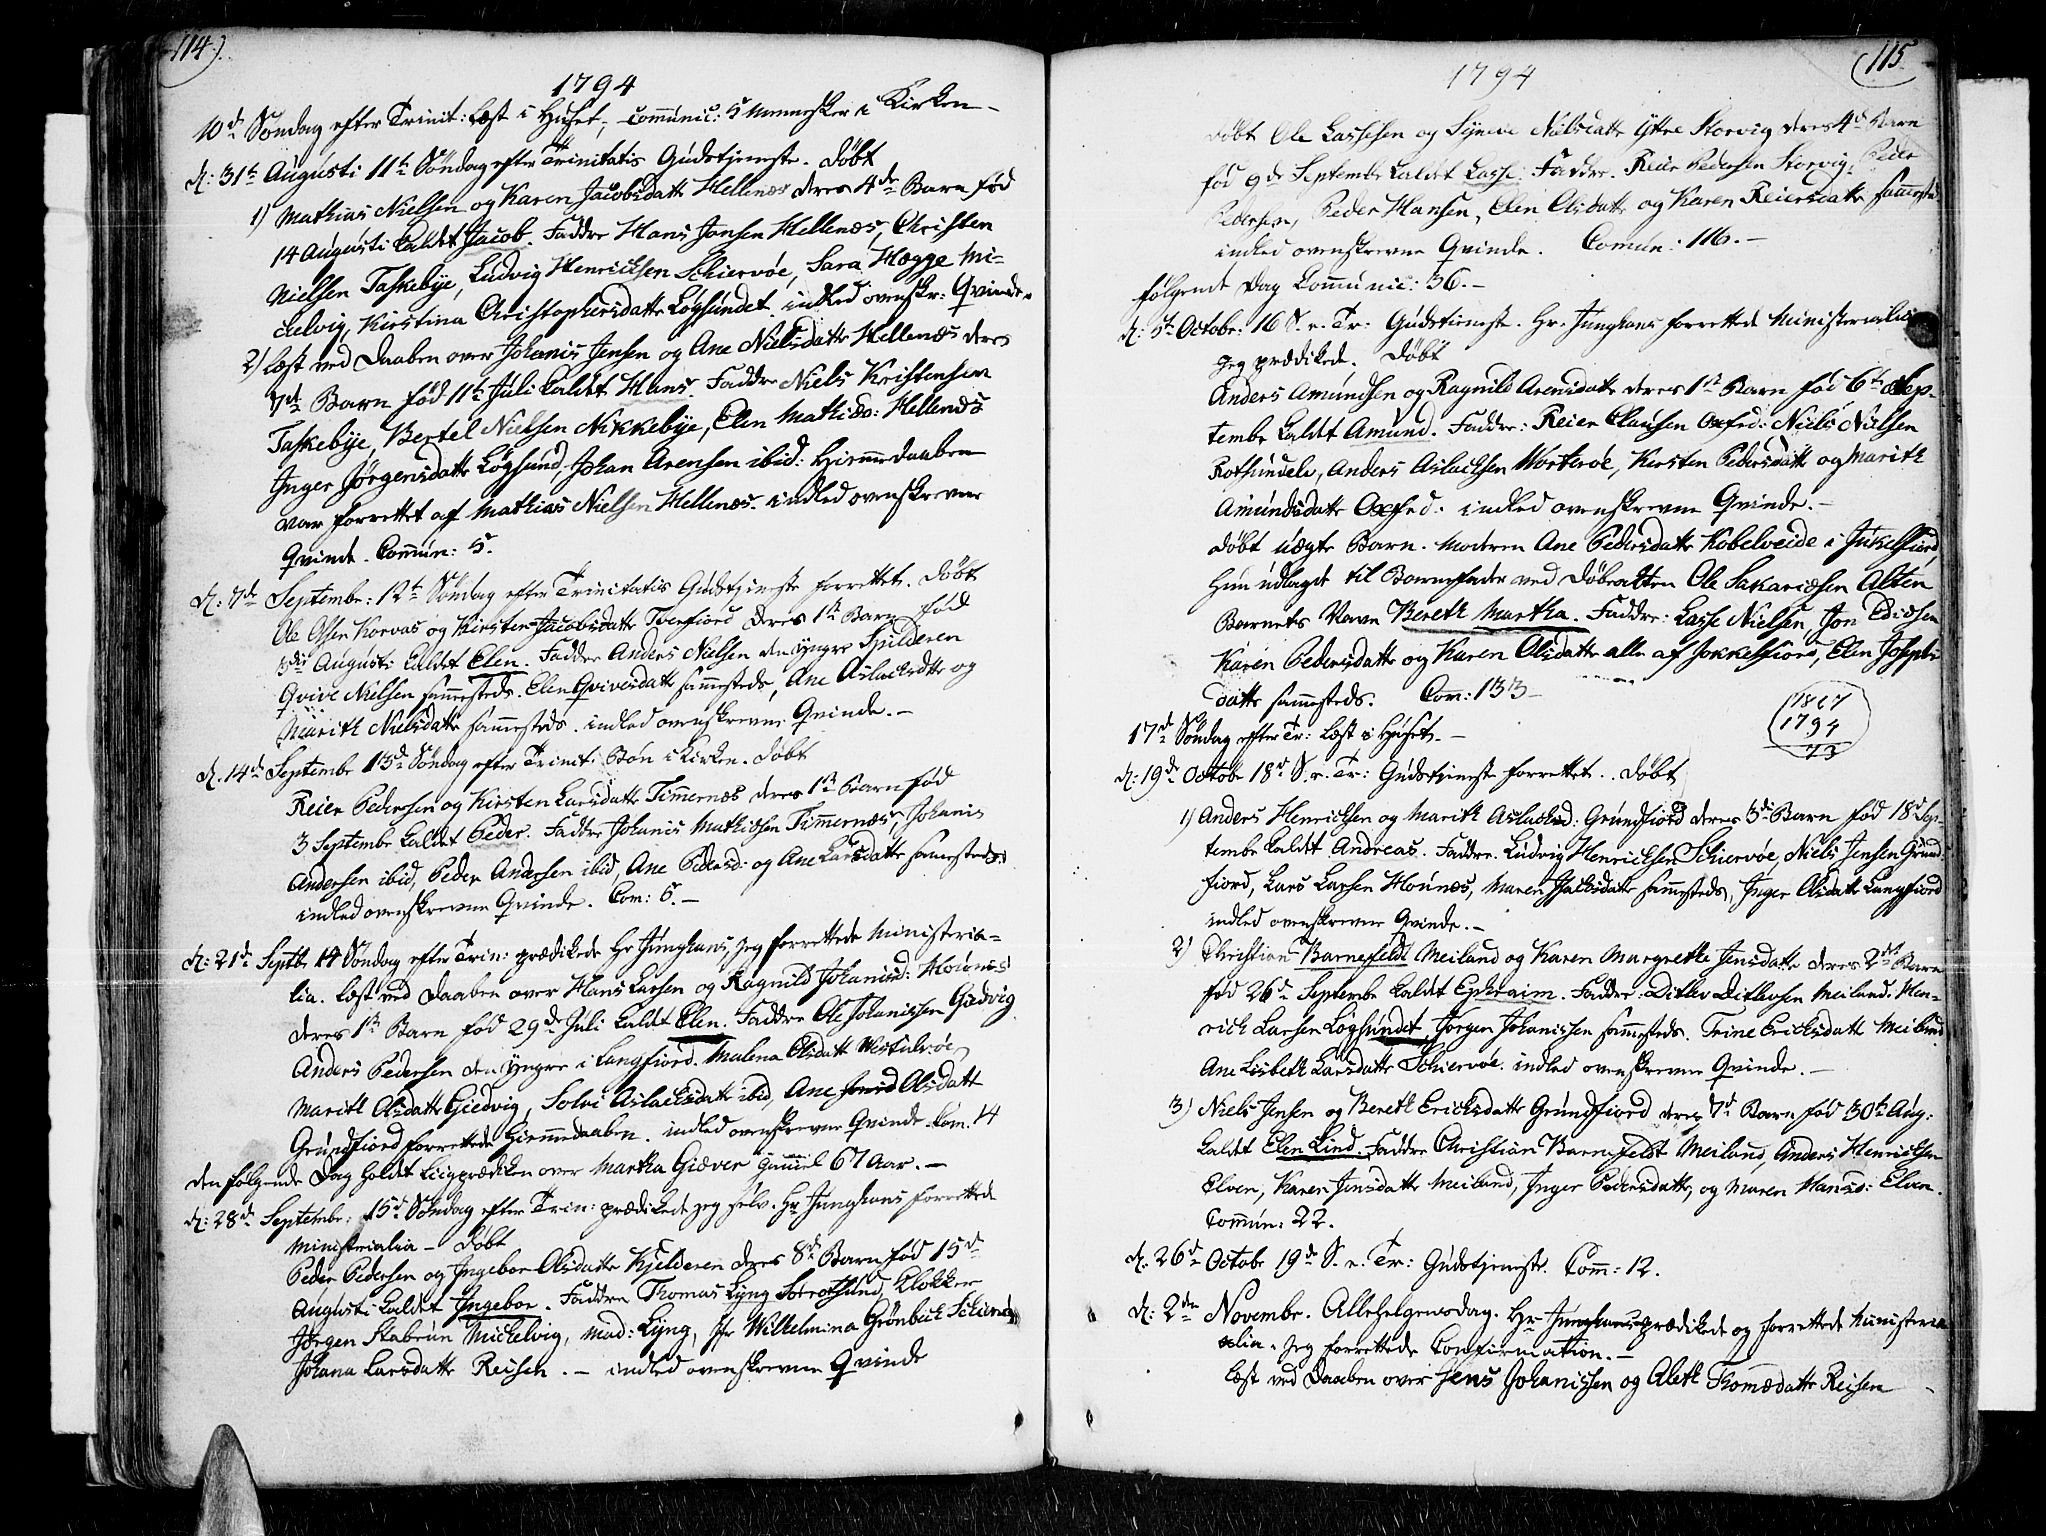 114).
1794
10de Søndag efter Trinit: læst i Huset, communic: 5 Mennesker i Kirken –
d: 31te Augusti 11te Søndag efter Trinitatis Gudstjeneste. døbt
1) Mathias Nielsen og Karen Jacobsdatt Hellenæs deres 4de Barn fød
14 Augusti kaldet Jacob. Faddre Hans Jonsen Hellenæs, Christen
Nielsen Taskebye, Ludvig Henricksen Schiervøe, Sara Hegge Mi-
ckelvig, Kirstina Christophersdatte Løgsundet. indled ovenskr: Qvinde.
2) læst ved Daaben over Johanis Jensen og Ane Nielsdatte Hellenæs deres
7de Barn fød 11te Juli kaldet Hans. Faddre Niels Kristensen
Taskebye, Bertel Nielsen Nikkebye, Elen Mathisd: Hellenæs
Inger Jørgensdatte Løgsund, Johan Arensen ibid: Hiemmedaaben
var forrettet af Mathias Nielsen Hellenæs. indled ovenskrevne
Qvinde. Commun: 5.
d: 7de Septembr: 12te Søndag efter Trinitatis Gudstjeneste forrettet. døbt
Ole Olsen Korvas og Kirsten Jacobsdatte Tverfiord deres 1te Barn fød
3die Augusti kaldet Elen. Faddre Anders Nielsen den yngre Spilderen
Qvive Nielsen sammesteds. Elen Qvivesdatt sammesteds, Ane Aslachsdtte og
Marith Nielsdatte sammesteds. indled ovenskrevne Qvinde. –
d. 14de Septembr 13de Søndag efter Trinit: Bøn i Kirken. døbt
Reier Pedersen og Kirsten Larsdatte Timmernæs deres 1te Barn fød
3 Septembr kaldet Peder. Faddre Johanis Mathisen Timmernæs, Johanis
Andersen ibid, Peder Andersen ibid, Ane Pedersd: og Ane Larsdatte sammesteds
indled ovenskrevne Qvinde. Com: 5. –
d: 21de Septbr 14 Søndag efter Trin: prædikede Hr Junghans, jeg forrettede Ministeria-
lia. læst ved Daaben over Hans Larsen og Ragnild Johanisd:
deres 1te Barn fød 29de Juli kaldet Elen. Faddre Ole Johanissen Giedvig
Anders Pedersen den yngre i Langfiord. Malena Olsdatt
Marith Olsdatte Giedvig, Solvi Aslachsdatte ibid, Ane Olsdatt
Grundfiord forrettede Hiemmedaaben. indled ovenskrevne Qvinde. Com. 14
den følgende Dag holdt Liigprædiken over Martha Giæver gammel 67 Aar. –
d: 28de Septembr: 15de Søndag efter Trin: prædikede jeg selv. Hr Junghans forrettede
Ministerialia – døbt
Peder Pedersen og Ingebor Olsdatte Kjelderen deres 8de Barn fød 15de
Augusti kaldet Ingebor. Faddre Thomas Lyng Klokker
Jørgen Michelvig, Mad: Lyng, Jfr Wilhelmina Grønbech
Johana Larsdatte Reisen. – indled ovenskrevne Qvinde
115
1794
døbt Ole Lassesen og Synevi Nielsdatte Yttre Storvig deres 4de Barn
fød 9de Septembr kaldet Lasse. Faddre. Reier Pedersen Storvig, Peder
Pedersen, Peder Hansen, Elen Olsdatte og Karen Reiersdatte sammesteds
indled ovenskrevne Qvinde. Comun: 116. –
følgende Dag Communic: 36. –
d: 5te Octobr: 16 S. e. Tr: Gudstieneste. Hr. Junghans forrettede Ministerialia
jeg prædikede. døbt
Anders Amundsen og Ragnild Arensdatte deres 1te Barn fød 6te Sep-
tembr kaldet Amund. Faddre: Reier Clausen Oxfd: Niels Nielsen
Rothundelv, Anders Aslachsen Vorterøe, Kirsten Pedersdatte og Marith
Amundsdatte Oxfd: indled ovenskrevne Qvinde. –
døbt uægte Barn. Moderen Ane Pedersdatte Kobelveide i Jøkelfiord
hun udlagde til Barnefader ved Døbeatten Ole Sakariæsen Alten
Barnets Navn Bereth Martha. Faddre: Lasse Nielsen, Jon Ediesen
Karen Pedersdatte og Karen Olsdatte alle af Jokkelfiord, Elen Josephs
datte sammesteds. Com: 133 –
1867
1794
73
17de Søndag efter Tr: læst i Huset. –
d: 19de Octobr 18de S. e. Tr: Gudstjeneste forrettet. døbt
1) Anders Henrichsen og Marith Aslachsd: Grundfiord deres 3die Barn fød 18de Sep-
tembr kaldet Andreas. Faddre. Ludvig Henricksen Schiervøe, Niels Jensen Grund-
fiord, Lars Larsen Hounæs, Maren Isachsdatte sammesteds, Inger Olsdatte Langfiord
indled ovenskrevne Qvinde. –
2) Christian Barnefeldt Meiland og Karen Margrethe Jensdatte deres 2det Barn
fød 26de Septembr kaldet Ephraim. Faddre: Ditlev Ditlevsen Meiland. Hen-
rich Larsen Løgsundet, Jørgen Johanissen sammesteds. Trine Ericksdatte Meiland.
Ane Lisbeth Larsdatte Schiervøe. indled ovenskrevne Qvinde. –
3) Niels Jensen og Bereth Ericksdatte Grundfiord deres 7de Barn fød 30te Aug:
kaldet Elen Lind. Faddre Christian Barnefeldt Meiland, Anders Henrichsen
Elven, Karen Jensdatte Meiland, Inger Pedersdatte, og Maren Hansd: Elven.
Commun: 22.
d. 26de Octobr 19de S. e. Tr: Gudstjeneste. Comm: 12.
d: 2den Novembr. Allehelgensdag. Hr Junghans prædikede og forrettede Ministeri-
alia. Jeg forrettede Confirmation. –
læst ved Daaben over Jens Johanissen og Aleth Thomædatte Reisen